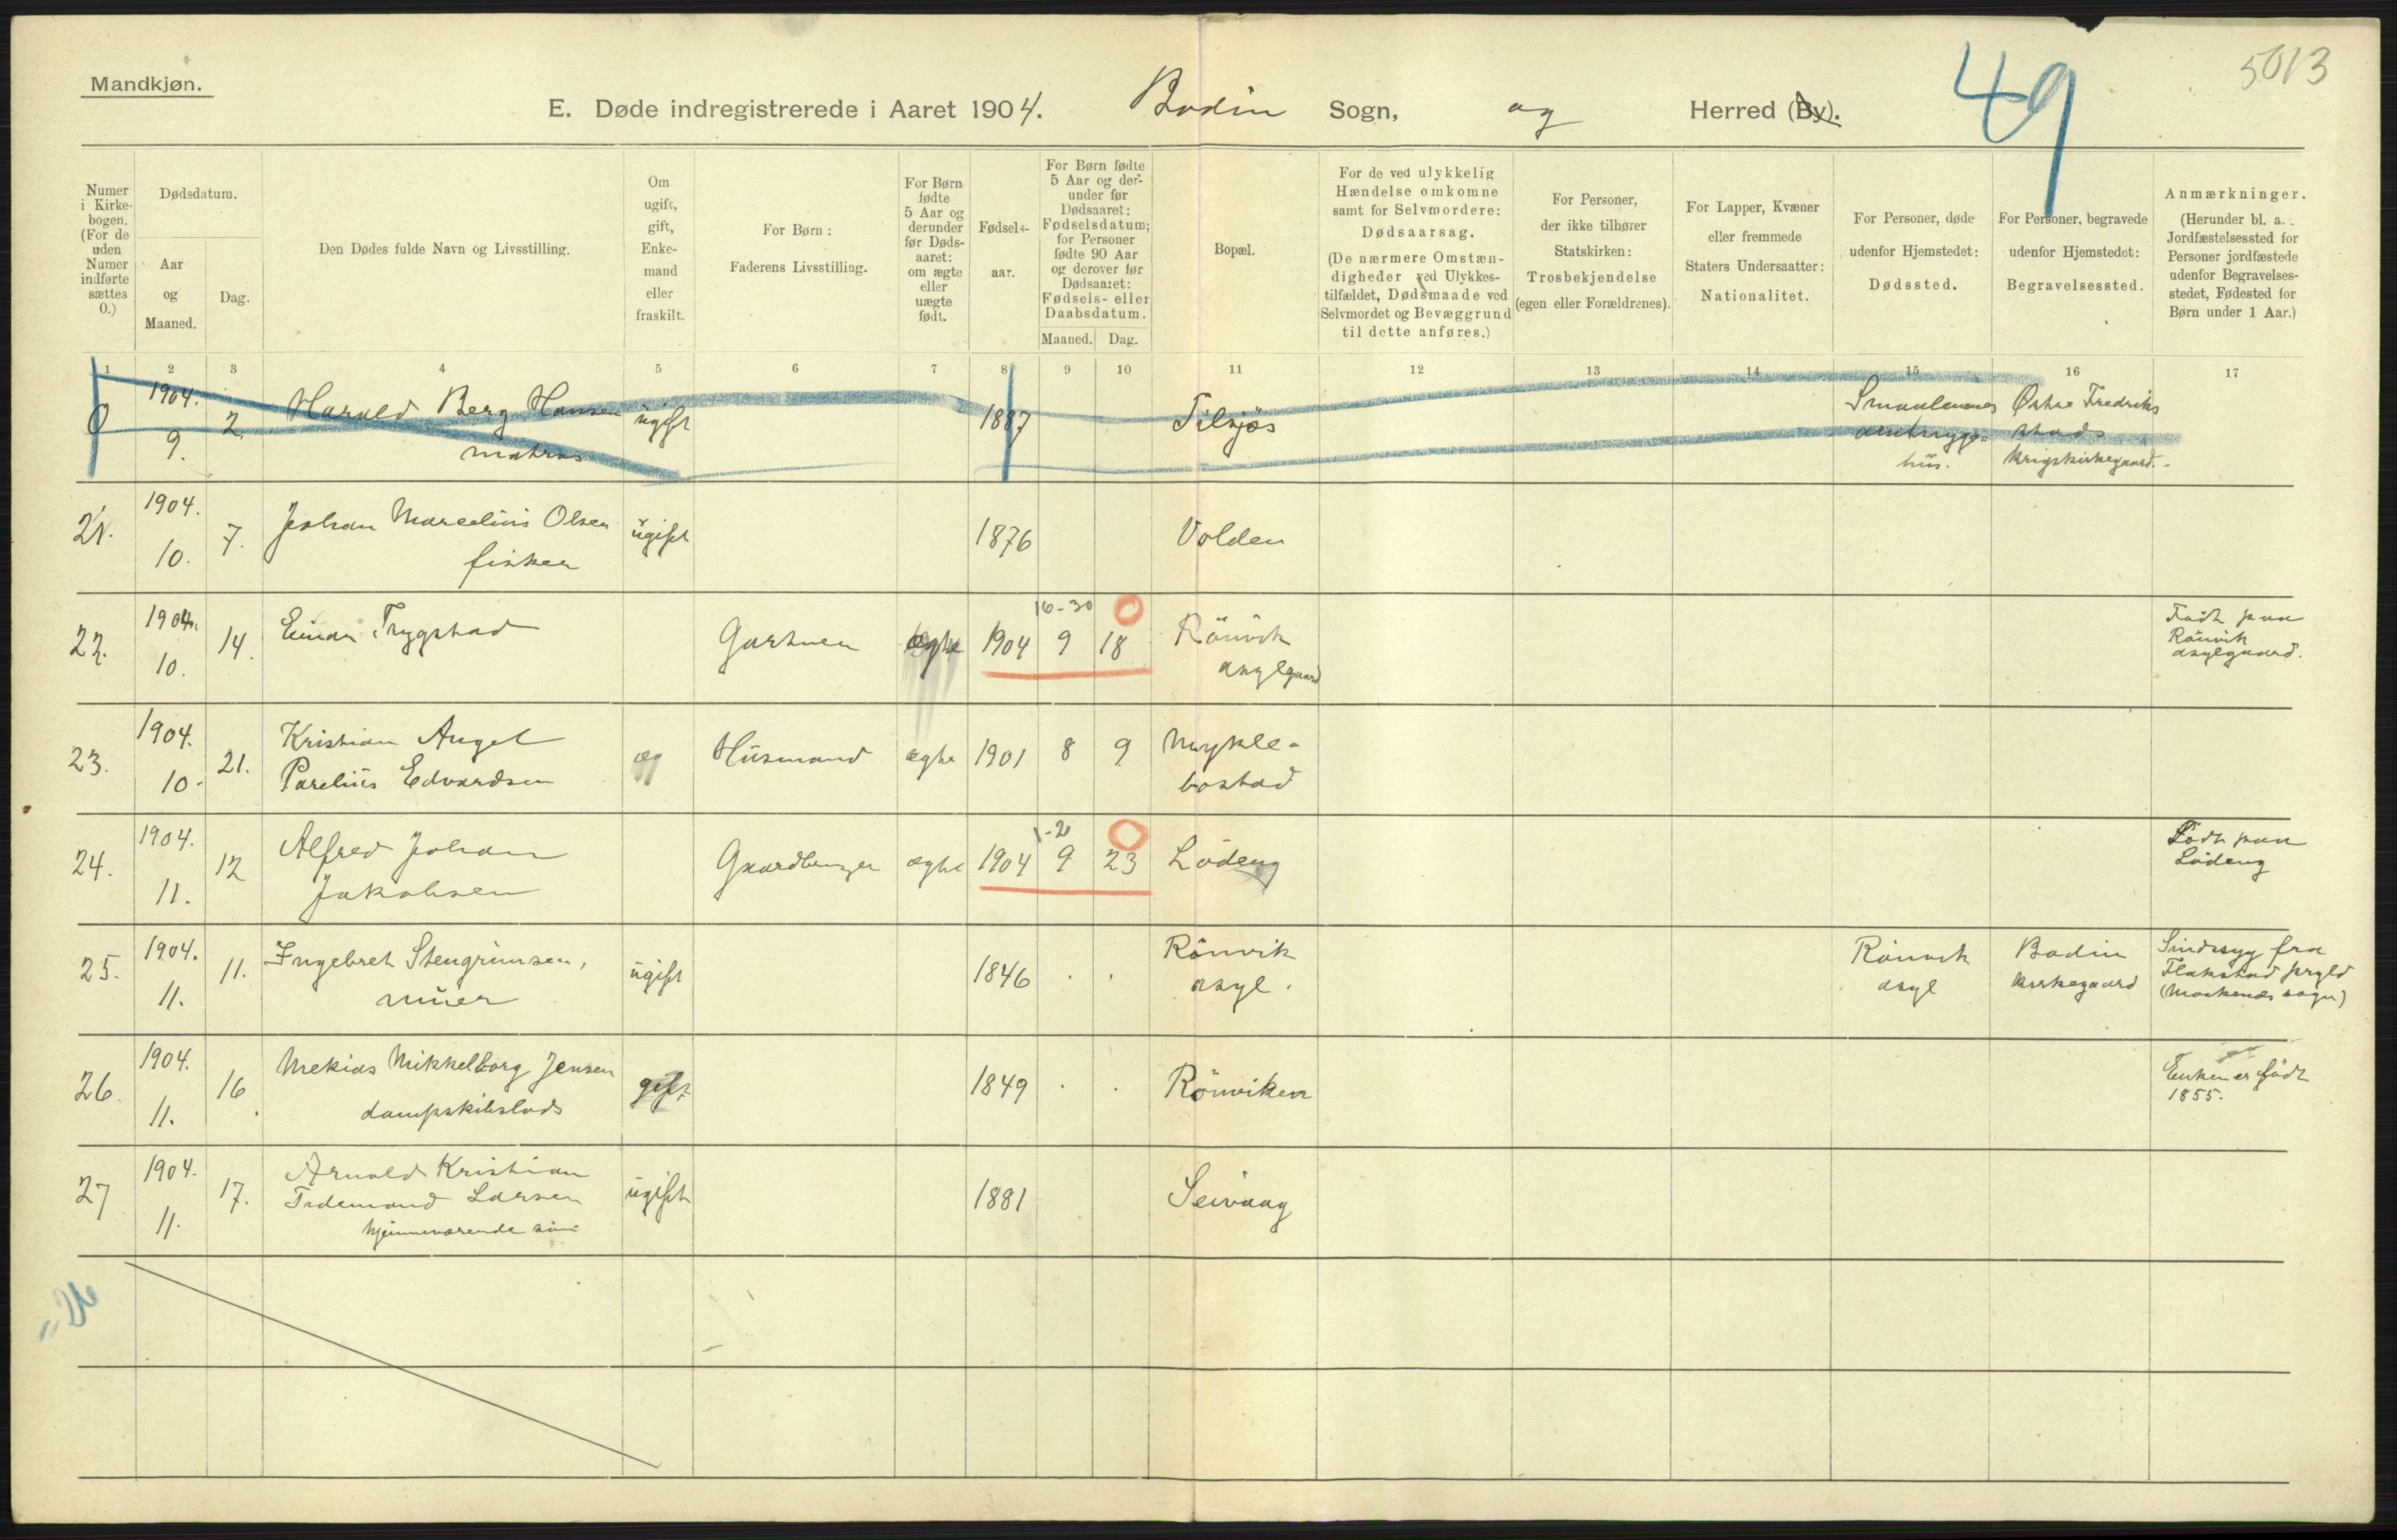 Mandkjøn.
5013
49
E. Døde indregistrerede i Aaret 1904. Bodin Sogn, og Herred (By).
Numer i Kirke-bogen. (For de uden Numer indførte sættes 0.)
Dødsdatum.
Aar og Maaned.
Dag.
Den Dødes fulde Navn og Livsstilling.
Om ugift, gift, Enke-mand eller fraskilt.
For Børn: Faderens Livsstilling.
For Børn fødte 5 Aar og derunder før Døds-aaret: om ægte eller uægte født.
Fødsels-aar.
For Børn fødte 5 Aar og der-under før Dødsaaret: Fødselsdatum; for Personer fødte 90 Aar og derover før Dødsaaret: Fødsels- eller Daabsdatum.
Maaned. Dag.
Bopæl.
For de ved ulykkelig Hændelse omkomne samt for Selvmordere: Dødsaarsag.
(De nærmere Omstæn-digheder ved Ulykkes-tilfældet, Dødsmaade ved Selvmordet og Bevæggrund til dette anføres.)
For Personer, der ikke tilhører Statskirken: Trosbekjendelse (egen eller Forældrenes).
For Lapper, Kvæner eller fremmede Staters Undersaatter: Nationalitet.
For Personer, døde udenfor Hjemstedet: Dødssted.
For Personer, begravede udenfor Hjemstedet: Begravelsessted.
Anmærkninger.
(Herunder bl. a. Jordfæstelsessted for Personer jordfæstede udenfor Begravelses-stedet, Fødested for Børn under 1 Aar.)
1 2 3 4 5 6 7 8 9 10 11 12 13 14 15 16 17
0 1904. 9. 2. Harald Berg Hansen matros ugift 1887 Smaalenenes amtssyge-hus. Østre Fredriks stads krigskirkegaard.
21. 1904. 10. 7. Johan Marcelius Olsen fisker ugift 1876 Volden
22. 1904. 10. 14. Einar Trygstad Gartner ægte 1904 9 18 16-30 Rönvik asylgaard Født paa Rönvik asylgaard.
23. 1904. 10. 21. Kristian Angel Parelius Edvardsen Husmand ægte 1901 8 9 Mykle-bostad
24. 1904. 11. 12 Alfred Johan Jakobsen Gaardbruger ægte 1904 9 23 1-2 Löding Födt paa Löding
25. 1904. 11. 11. Ingebret Stengrimsen, ugift 1846 Rönvik asyl. Rönvik asyl Bodin kirkegaard Sindssyg fra Flakstad prgld (Moskenes sogn)
26. 1904. 11. 16. Mekias Mikkelborg Jensen dampskibslods gift 1849 Rönviken Enken er födt 1855.
27 1904. 11. 17. Arnold Kristian Tidemand Larsen hjemmeværende sön ugift 1881 Seivaag